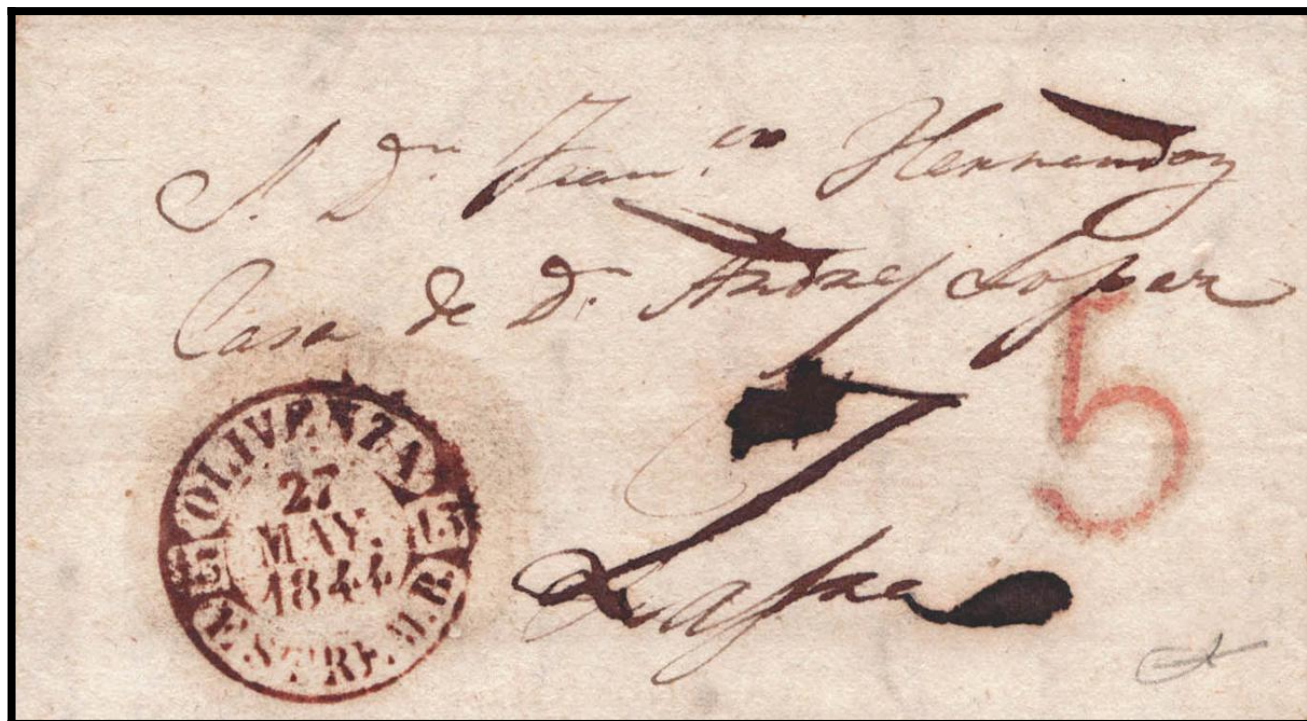 S. Dn. Franco. Hernandez
Casa de Dn. Andres Lopez
Zafra
5
OLIVENZA
27
MAY.
1844
ESTREM.B.